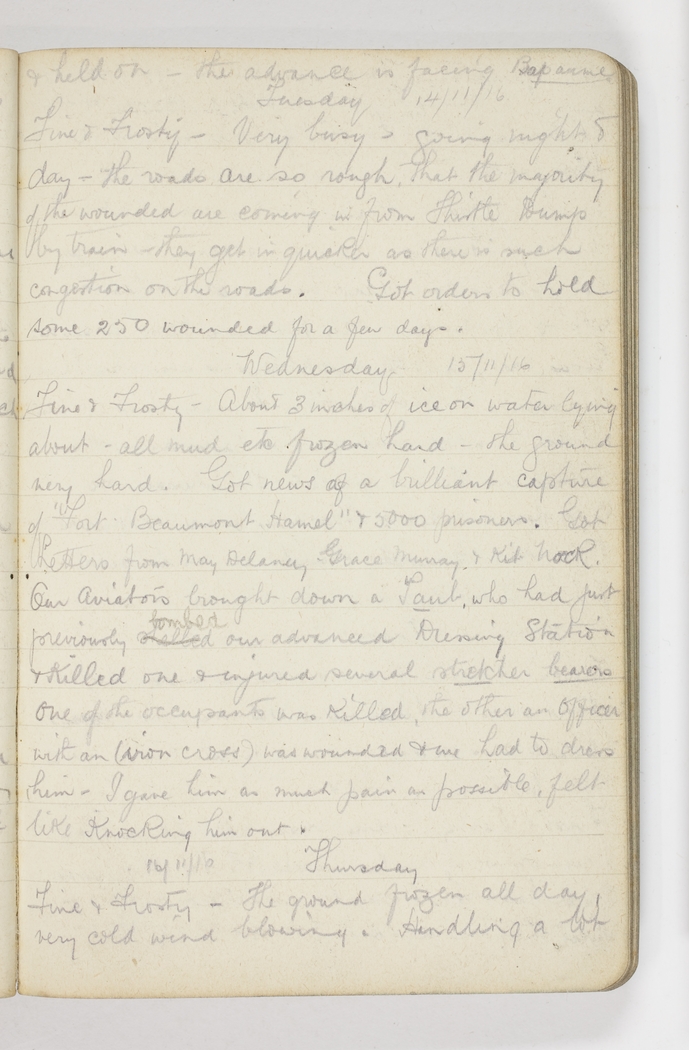 & held on – the advance is facing Bapaume
Tuesday 14/11/16
Fine & Frosty – Very busy – going night &
day – the roads are so rough, that the majority
of the wounded are coming in from Thistle Dump
by train – they get in quicker as there is such
congestion on the roads. Got orders to hold
some 250 wounded for a few days.
Wednesday 15/11/16
Fine & Frosty – About 3 inches of ice on water lying
about – all mud etc frozen hard – the ground
very hard. Got news of a brilliant capture
of "Fort Beaumont Hamel" & 5000 prisoners. Got
letters from May Delaney, Grace Murray, & Kit
Our Aviators brought down a Taub, who had just
bombed
previously shelled our advanced Dressing Station
& Killed one & injured several stretcher bearers
One of the occupants was Killed, the other an Officer
with an (iron cross) was wounded & we had to dress
him – I gave him as much pain as possible, felt
like Knocking him out.
16/11/16 Thursday
Fine & Frosty – The ground frozen all day,
very cold wind blowing. Handling a lot